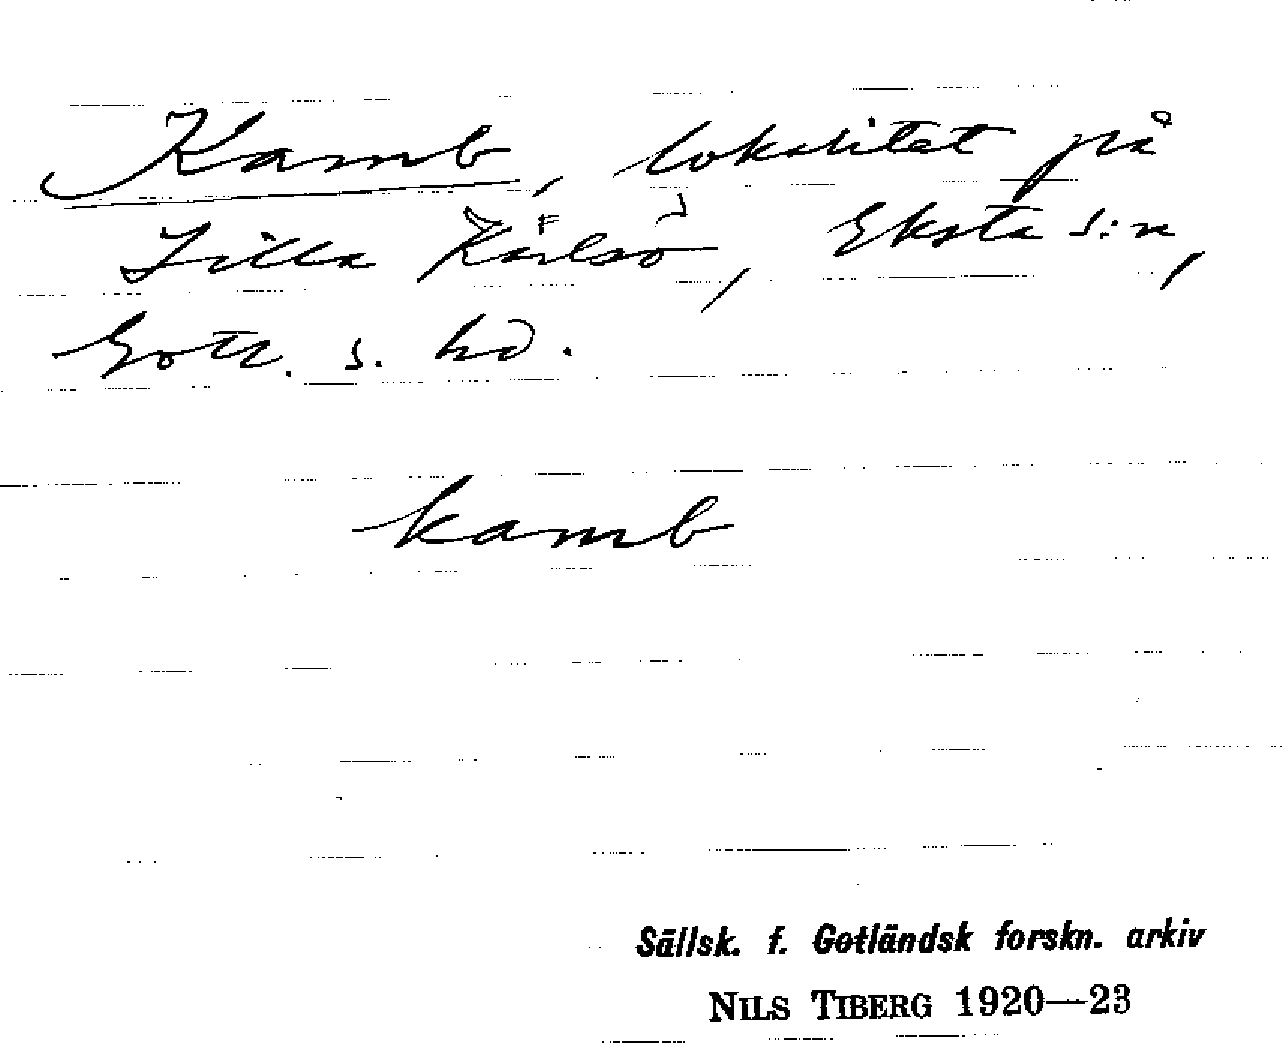 Kamb, lokalitet på
Lilla Karlsö, Eksta s:n,
Gotl. s. hd.
kamb
Sällsk. f. Gotländsk forskn. arkiv
NILS TIBERG 1920—23